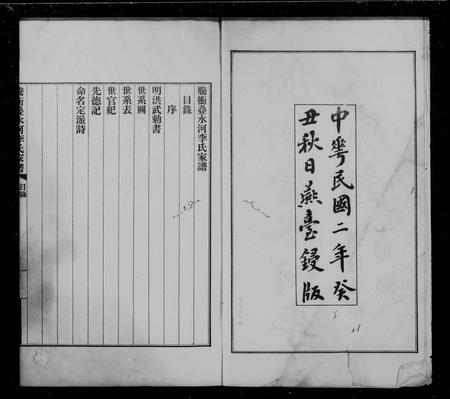 中華民國二年癸
丑秋日燕臺鋟版
騰衝疊水河李氏家譜
目錄
序
明洪武勅書
世系圖
世系表
世官紀
先德記
命名定派詩
騰衝疊水河李氏家譜
目錄